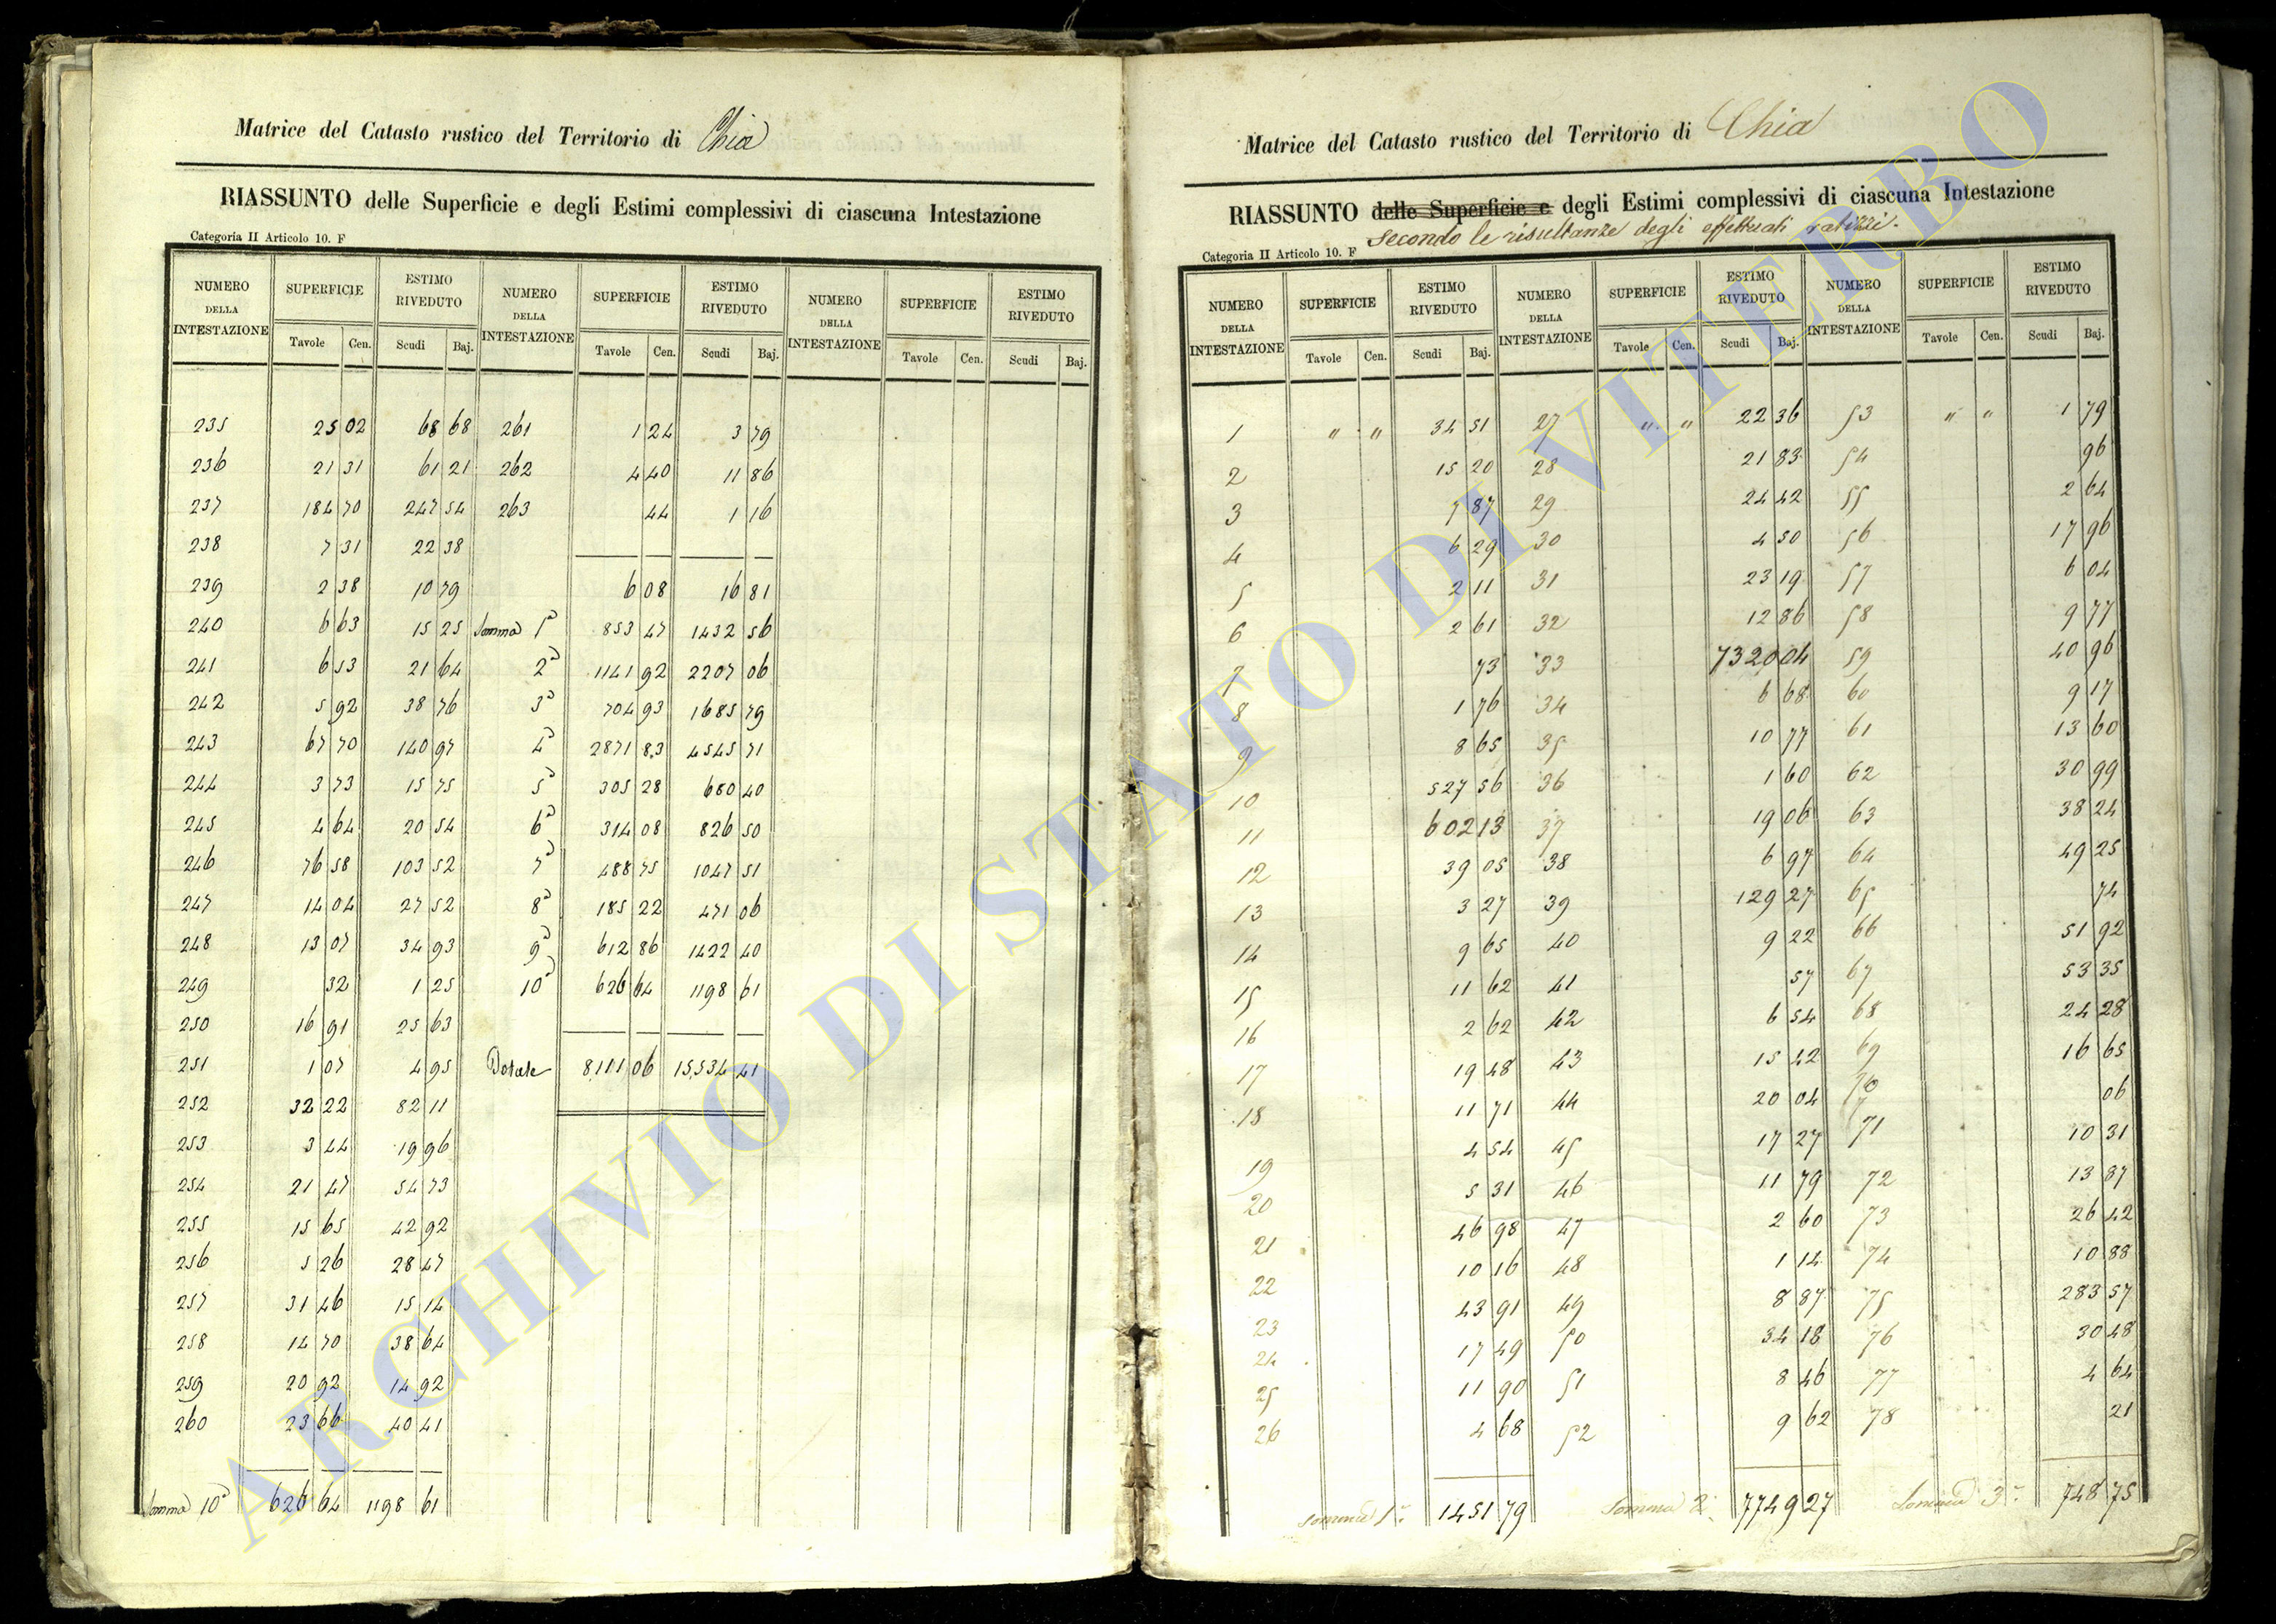 Matrice del Catasto rustico del Territorio di Chia
RIASSUNTO delle Superficie e degli Estimi complessivi di ciascuna Intestazione
Categoria II Articolo 10. F
NUMERO DELLA INTESTAZIONE SUPERFICIE ESTIMO RIVEDUTO NUMERO DELLA INTESTAZIONE SUPERFICIE ESTIMO RIVEDUTO NUMERO DELLA INTESTAZIONE SUPERFICIE ESTIMO RIVEDUTO
Tavole Cen. Scudi Baj. Tavole Cen. Scudi Baj. Tavole Cen. Scudi Baj.
235 25 02 68 68 261 1 24 3 79
236 21 31 61 21 262 4 40 11 86
237 184 70 247 54 263 44 1 16
238 7 31 22 38
239 2 38 10 79 6 08 16 81
240 6 63 15 25 Somma 1a 853 47 1432 56
241 6 53 21 64 2a 1141 92 2207 06
242 5 92 38 76 3a 704 93 1685 79
243 67 70 140 97 4a 2871 83 4545 71
244 3 73 15 75 5a 305 28 680 40
245 4 64 20 54 6a 314 08 826 50
246 76 58 103 52 7a 488 75 1047 51
247 14 04 27 52 8a 185 22 471 06
248 13 07 34 93 9a 612 86 1422 40
249 32 1 25 10a 626 64 1198 61
250 16 91 25 63
251 1 07 4 95 Totale 8111 06 15,534 41
252 32 22 82 11
253 3 44 19 96
254 21 47 54 73
255 15 65 42 92
256 5 26 28 47
257 31 46 15 14
258 14 70 38 64
259 20 92 14 92
260 23 66 40 41
Somma 10a 626 64 1198 61
Matrice del Catasto rustico del Territorio di Chia
RIASSUNTO delle Superficie e degli Estimi complessivi di ciascuna Intestazione
secondo le risultanze degli effettuati ratizzi.
Categoria II Articolo 10. F
NUMERO DELLA INTESTAZIONE SUPERFICIE ESTIMO RIVEDUTO NUMERO DELLA INTESTAZIONE SUPERFICIE ESTIMO RIVEDUTO NUMERO DELLA INTESTAZIONE SUPERFICIE ESTIMO RIVEDUTO
Tavole Cen. Scudi Baj. Tavole Cen. Scudi Baj. Tavole Cen. Scudi Baj.
1 " " 34 51 27 " " 22 36 53 " " 1 79
2 15 20 28 21 83 54 96
3 7 87 29 24 42 55 2 64
4 6 29 30 4 50 56 17 96
5 2 11 31 23 19 57 6 04
6 2 61 32 12 86 58 9 77
7 73 33 7320 04 59 40 96
8 1 76 34 6 68 60 9 17
9 8 65 35 10 77 61 13 60
10 527 56 36 1 60 62 30 99
11 602 13 37 19 06 63 38 24
12 39 05 38 6 97 64 49 25
13 3 27 39 129 27 65 74
14 9 65 40 9 22 66 51 92
15 11 62 41 57 67 53 35
16 2 62 42 6 54 68 24 28
17 19 48 43 15 42 69 16 65
18 11 71 44 20 04 70 06
19 4 54 45 17 27 71 10 31
20 5 31 46 11 79 72 13 87
21 46 98 47 2 60 73 26 42
22 10 16 48 1 14 74 10 88
23 43 91 49 8 87 75 283 57
24 17 49 50 34 18 76 30 48
25 11 90 51 8 46 77 4 64
26 4 68 52 9 62 78 21
Somma 1a 1451 79 Somma 2a 7749 27 Somma 3a 748 75
ARCHIVIO DI STATO DI VITERBO